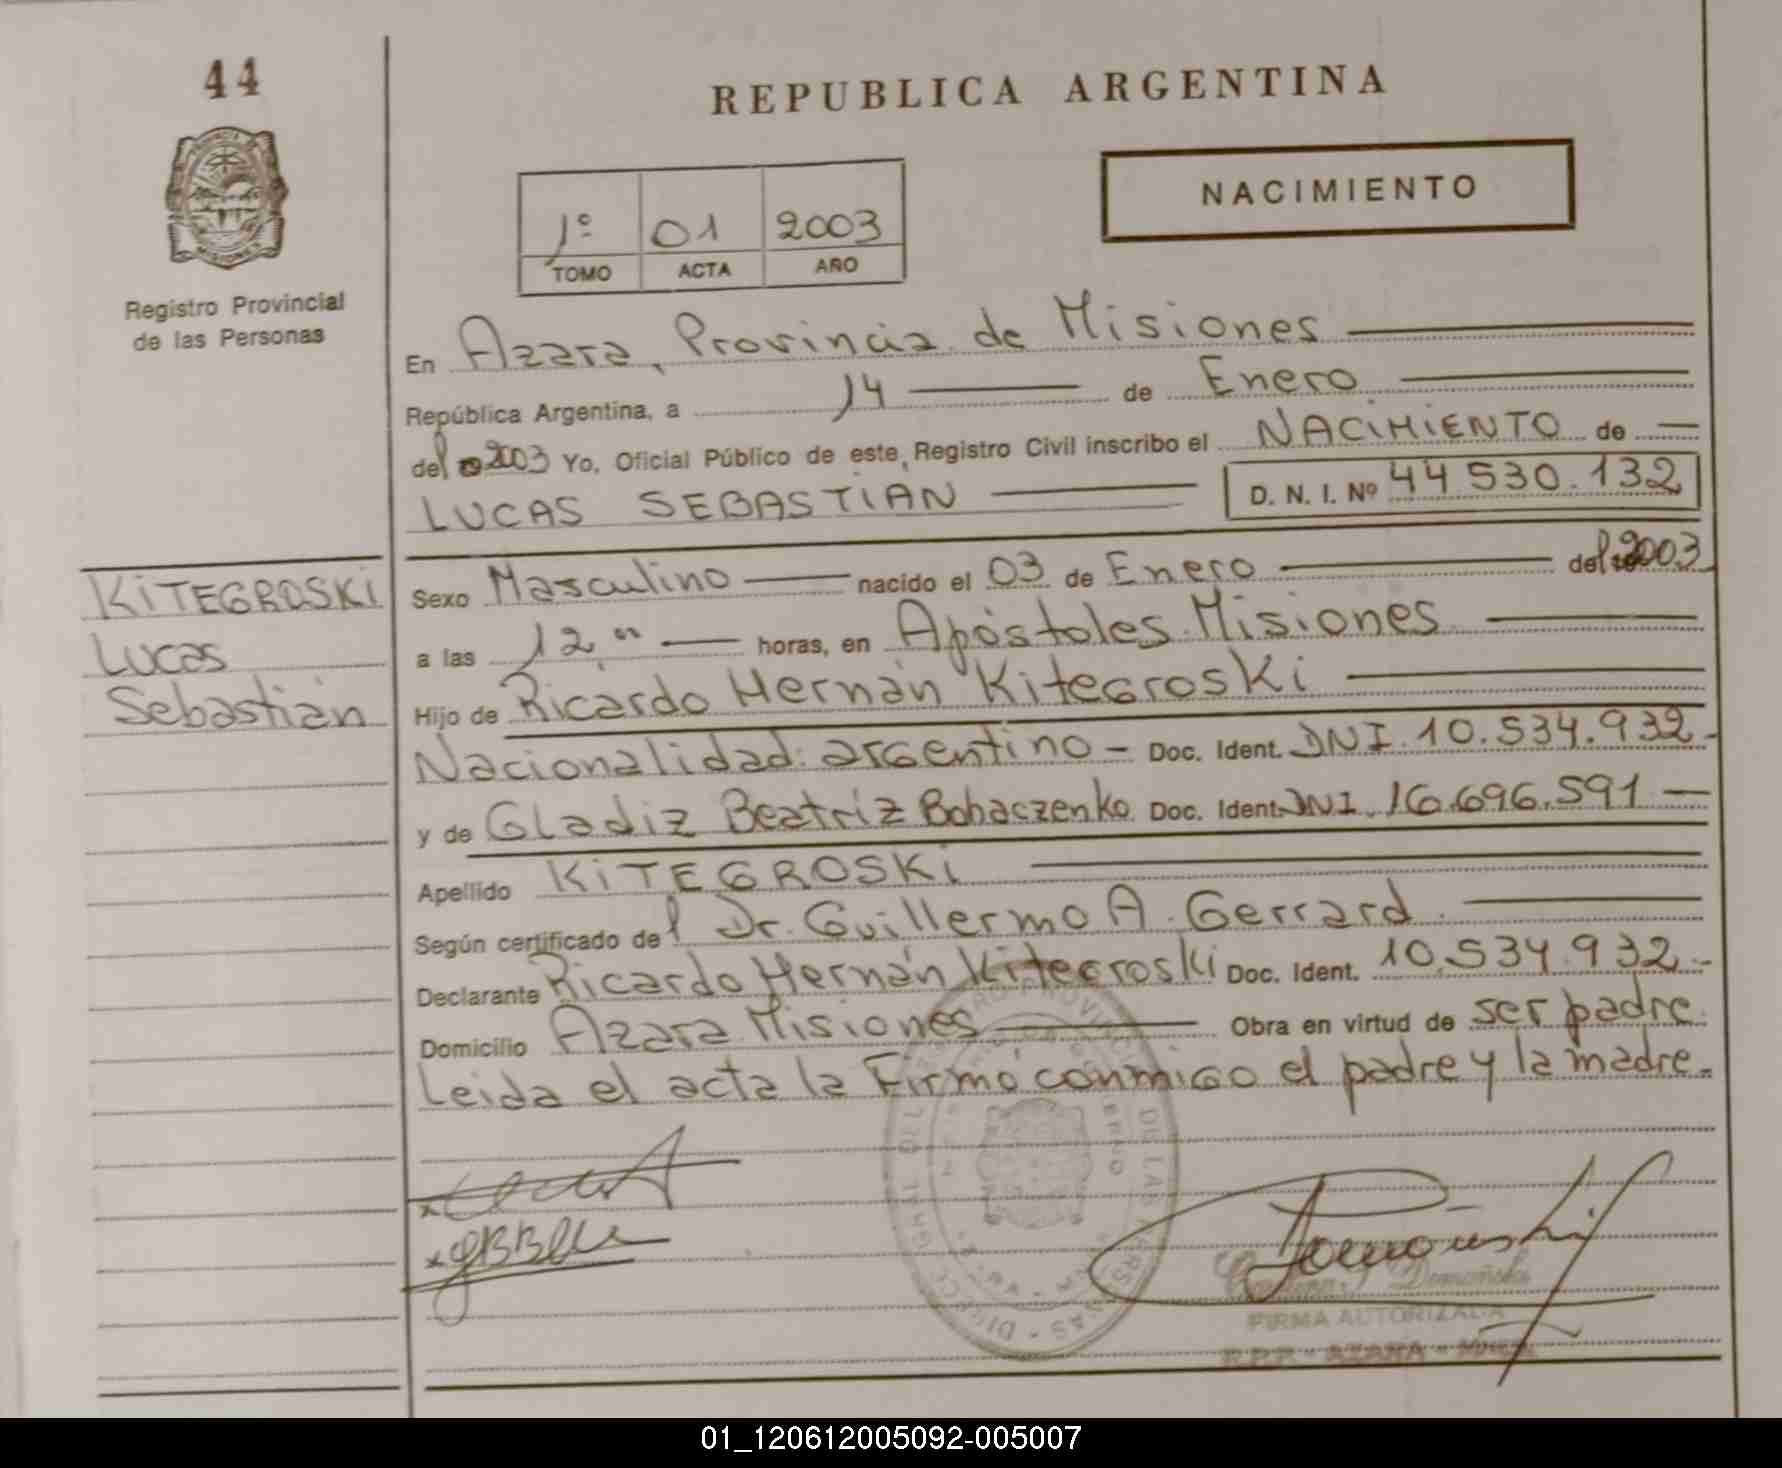 44
REPUBLICA ARGENTINA
NACIMIENTO
1º 01 2003
TOMO ACTA AÑO
Registro Provincial
de las Personas
En Azara, Provincia de Misiones
República Argentina, a 14 de Enero
del 2003 Yo, Oficial Público de este Registro Civil inscribo el NACIMIENTO de
LUCAS SEBASTIAN D. N. I. Nº 44 530.132
KITEGROSKI
Lucas
Sebastián
Sexo Masculino nacido el 03 de Enero del 2003
a las 12 horas, en Apóstoles Misiones
Hijo de Ricardo Hernán Kitegroski
Nacionalidad: argentino - Doc. Ident. DNI. 10.534.932-
y de Gladiz Beatriz Bohaczenko Doc. Ident. DNI. 16.696.591
Apellido KITEGROSKI
Según certificado del Dr. Guillermo A. Gerrard
Declarante Ricardo Hernán Kitegroski Doc. Ident. 10.534.932.-
Domicilio Azara Misiones Obra en virtud de ser padre.
Leida el acta la Firmó conmigo el padre y la madre.
FIRMA AUTORIZADA
R.P.P. - AZARA - MNES.
01_120612005092-005007